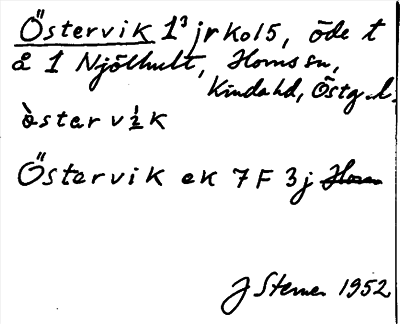 Östervik 1³ jrko15, öde t
å 1 Njölhult, Horns sn,
Kinda hd, Östg. l.
òstar v½k
Östervik ek 7 F 3j Horn
J Sterner 1952